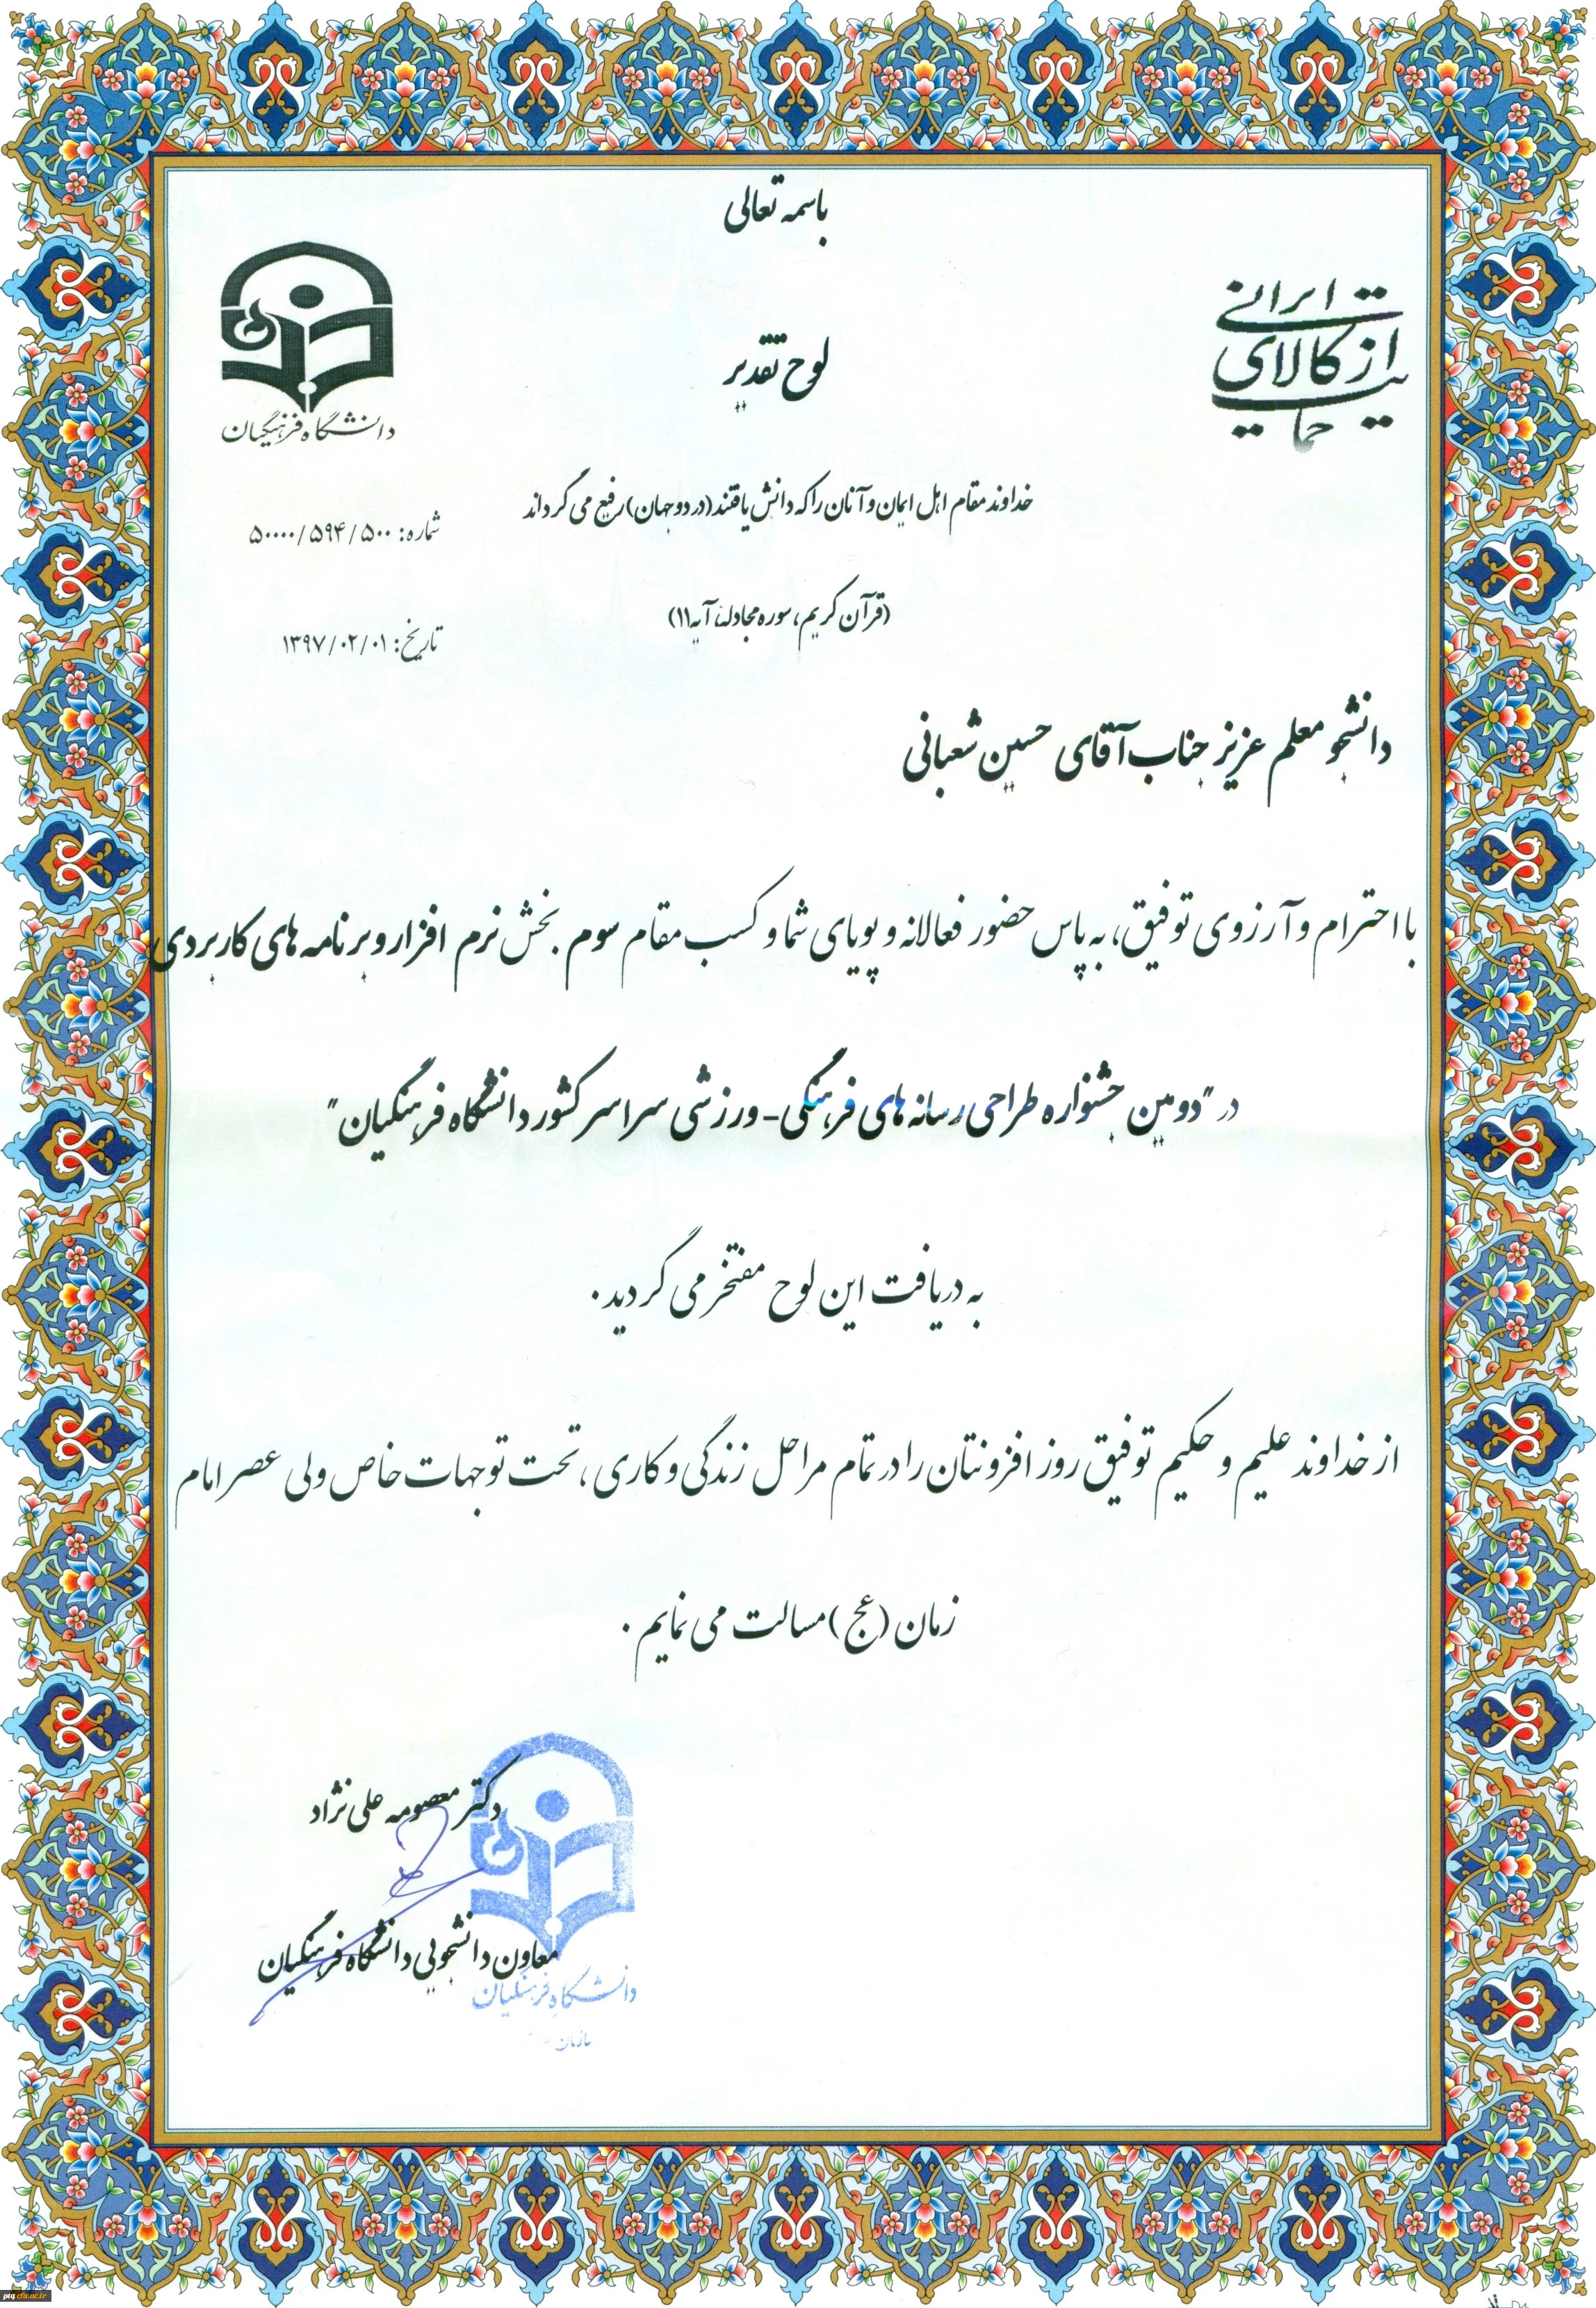 باسمه تعالی
حمایت از کالای ایرانی
دانشگاه فرهنگیان
لوح تقدیر
خداوند مقام اهل ایمان و آنان را که دانش یافتند (در دو جهان) رفیع می گرداند
شماره: ۵۰۰۰۰/۵۹۴/۵۰۰
(قرآن کریم، سوره مجادله، آیه ۱۱)
تاریخ: ۱۳۹۷/۰۲/۰۱
دانشجو معلم عزیز جناب آقای حسین شعبانی
با احترام و آرزوی توفیق، به پاس حضور فعالانه و پویای شما و کسب مقام سوم بخش نرم افزار و برنامه های کاربردی
در "دومین جشنواره طراحی رسانه های فرهنگی - ورزشی سراسر کشور دانشگاه فرهنگیان"
به دریافت این لوح مفتخر می گردید.
از خداوند علیم و حکیم توفیق روز افزونتان را در تمام مراحل زندگی و کاری، تحت توجهات خاص ولی عصر امام
زمان (عج) مسالت می نمایم.
دکتر معصومه علی نژاد
معاون دانشجویی دانشگاه فرهنگیان
دانشگاه فرهنگیان
سازمان
piq.cfu.ac.ir